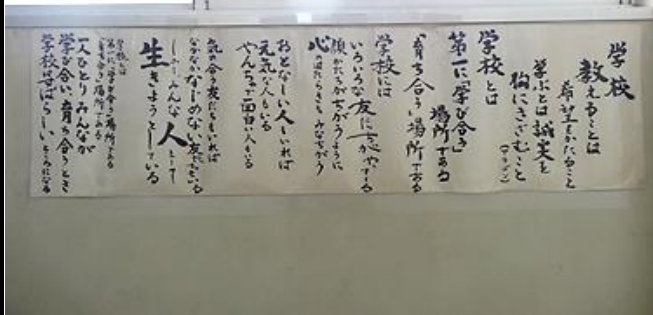 学校
教えることは
希望をかたること
学ぶとは誠実を
胸にきざむこと
(アラゴン)
学校とは
第一に「学び合う」
場所である
「育ち合う」場所である
学校には
いろいろな友に
顔かたちがちがうように
心の
みなちがう
おとなしい人もいれば
元気な人もいる
やんちゃで面白い人もいる
気の合う友だちもいれば
なかなかなじめない友だちもいる
しかしみんな人として
生きようとしている
学校とは
第一に「学び合う」場所である
「育ち合う」場所である
一人ひとりみんなが
学び合い、育ち合うとき
学校はすばらしいところになる